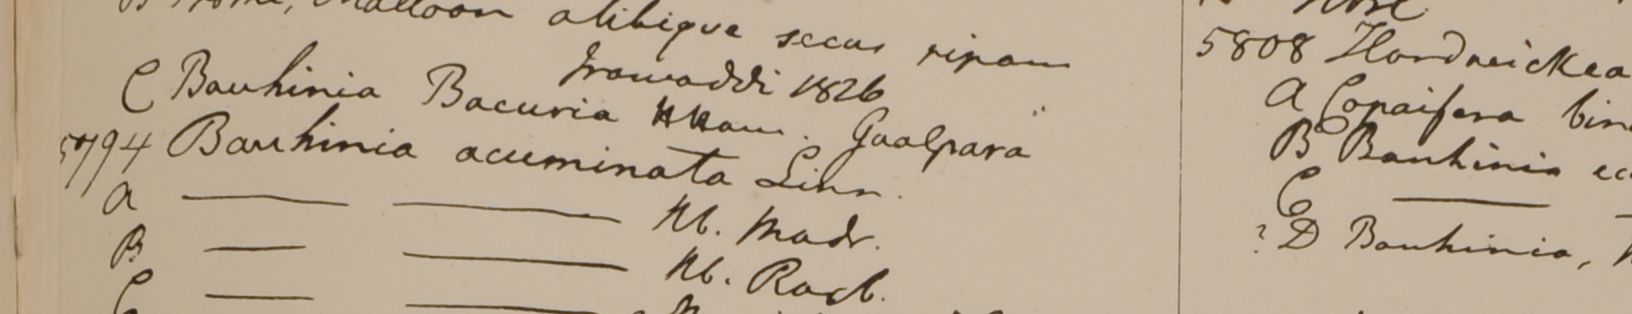 B Prome, Malloon alibique secus ripam
Irawaddi 1826
C Bauhinia Bacuria HHam. Goalpara
5794 Bauhinia acuminata Linn.
A — — Hb. Madr.
B — — Hb. Roxb.
C — —
5808 Hardwickea
A Copaifera bin
B Bauhinia
C —
? D Bauhinia,